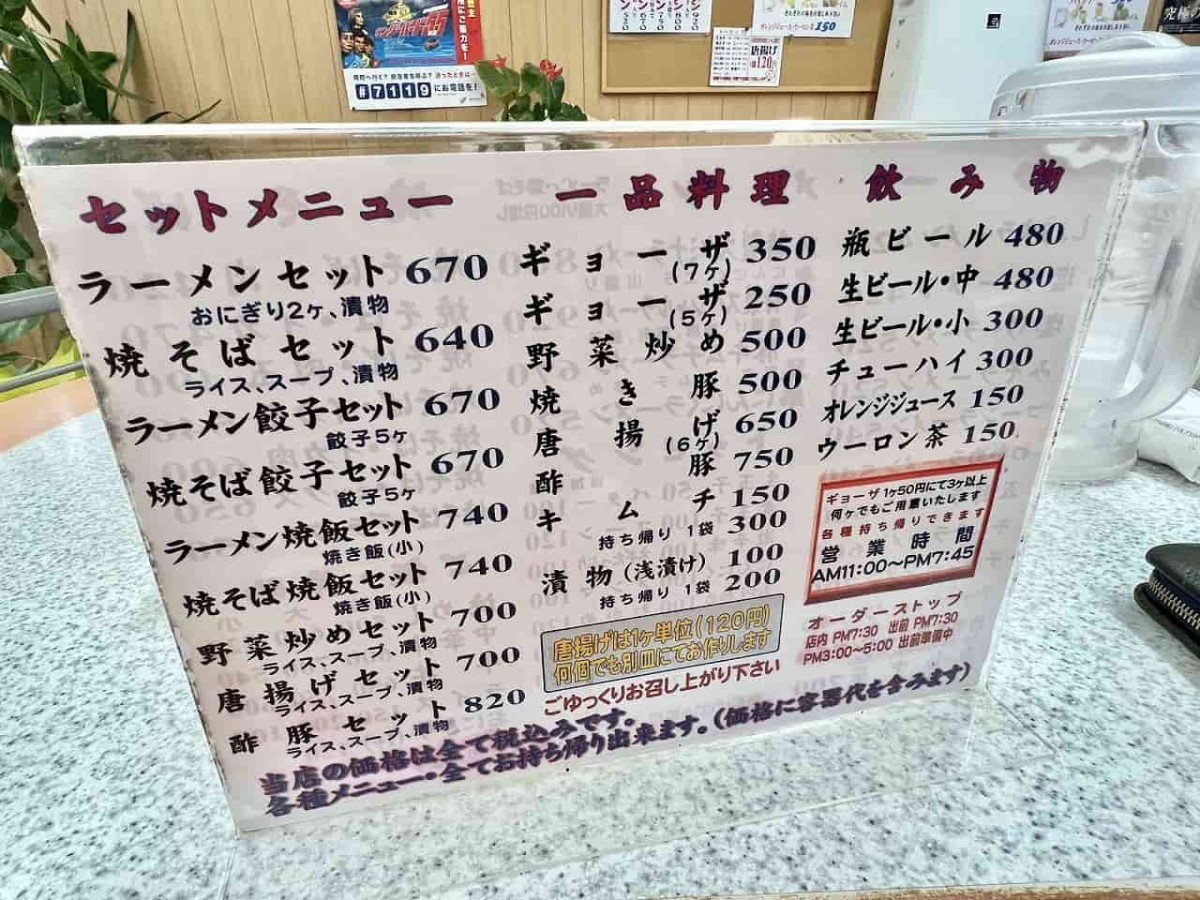 #7119にお電話を!
唐揚げ
120円
150
セットメニュー
ラーメンセット 670
おにぎり2ヶ、漬物
焼そばセット 640
ライス、スープ、漬物
ラーメン餃子セット 670
餃子5ヶ
焼そば餃子セット 670
餃子5ヶ
ラーメン焼飯セット 740
焼き飯(小)
焼そば焼飯セット 740
焼き飯(小)
野菜炒めセット 700
ライス、スープ、漬物
唐揚げセット 700
ライス、スープ、漬物
酢豚セット 820
ライス、スープ、漬物
一品料理
ギョーザ 350
(7ヶ)
ギョーザ 250
(5ヶ)
野菜炒め 500
焼き豚 500
唐揚げ 650
(6ヶ)
酢豚 750
キムチ 150
持ち帰り 1袋 300
漬物(浅漬け) 100
持ち帰り 1袋 200
唐揚げは1ヶ単位(120円)
何個でも別皿にてお作りします
ごゆっくりお召し上がり下さい
飲み物
瓶ビール 480
生ビール・中 480
生ビール・小 300
チューハイ 300
オレンジジュース 150
ウーロン茶 150
ギョーザ 1ヶ50円にて3ヶ以上
何ヶでもご用意いたします
各種持ち帰りできます
営業時間
AM11:00〜PM7:45
オーダーストップ
店内 PM7:30 出前 PM7:30
PM3:00〜5:00 出前準備中
当店の価格は全て税込みです。
各種メニュー・全てお持ち帰り出来ます。(価格に容器代を含みます)